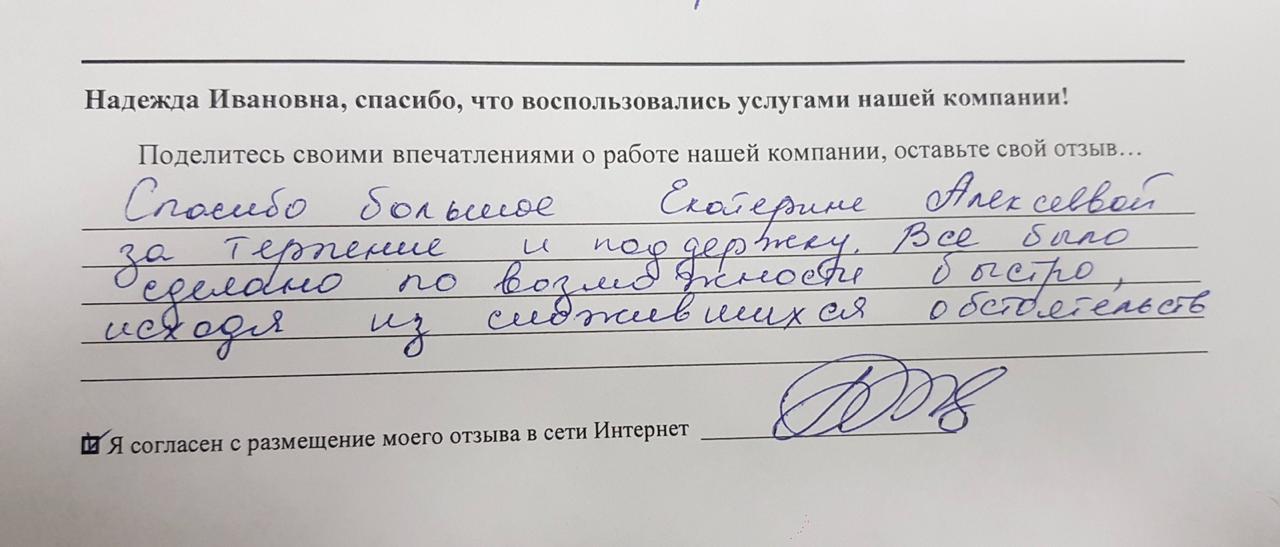 Надежда Ивановна, спасибо, что воспользовались услугами нашей компании!
Поделитесь своими впечатлениями о работе нашей компании, оставьте свой отзыв…
Спасибо большое Екатерине Алексеевой
за терпение и поддержку. Все было
сделано по возможности быстро,
исходя из сложившихся обстоятельств
Я согласен с размещение моего отзыва в сети Интернет